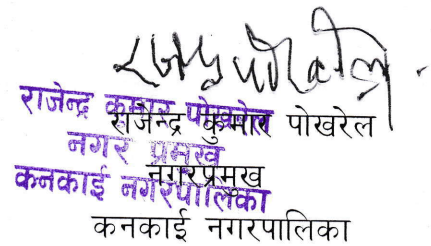 राजेन्द्र कुमार पोखरेल
नगर प्रमुख
कनकाई नगरपालिका
राजेन्द्र कुमार पोखरेल
नगरप्रमुख
कनकाई नगरपालिका